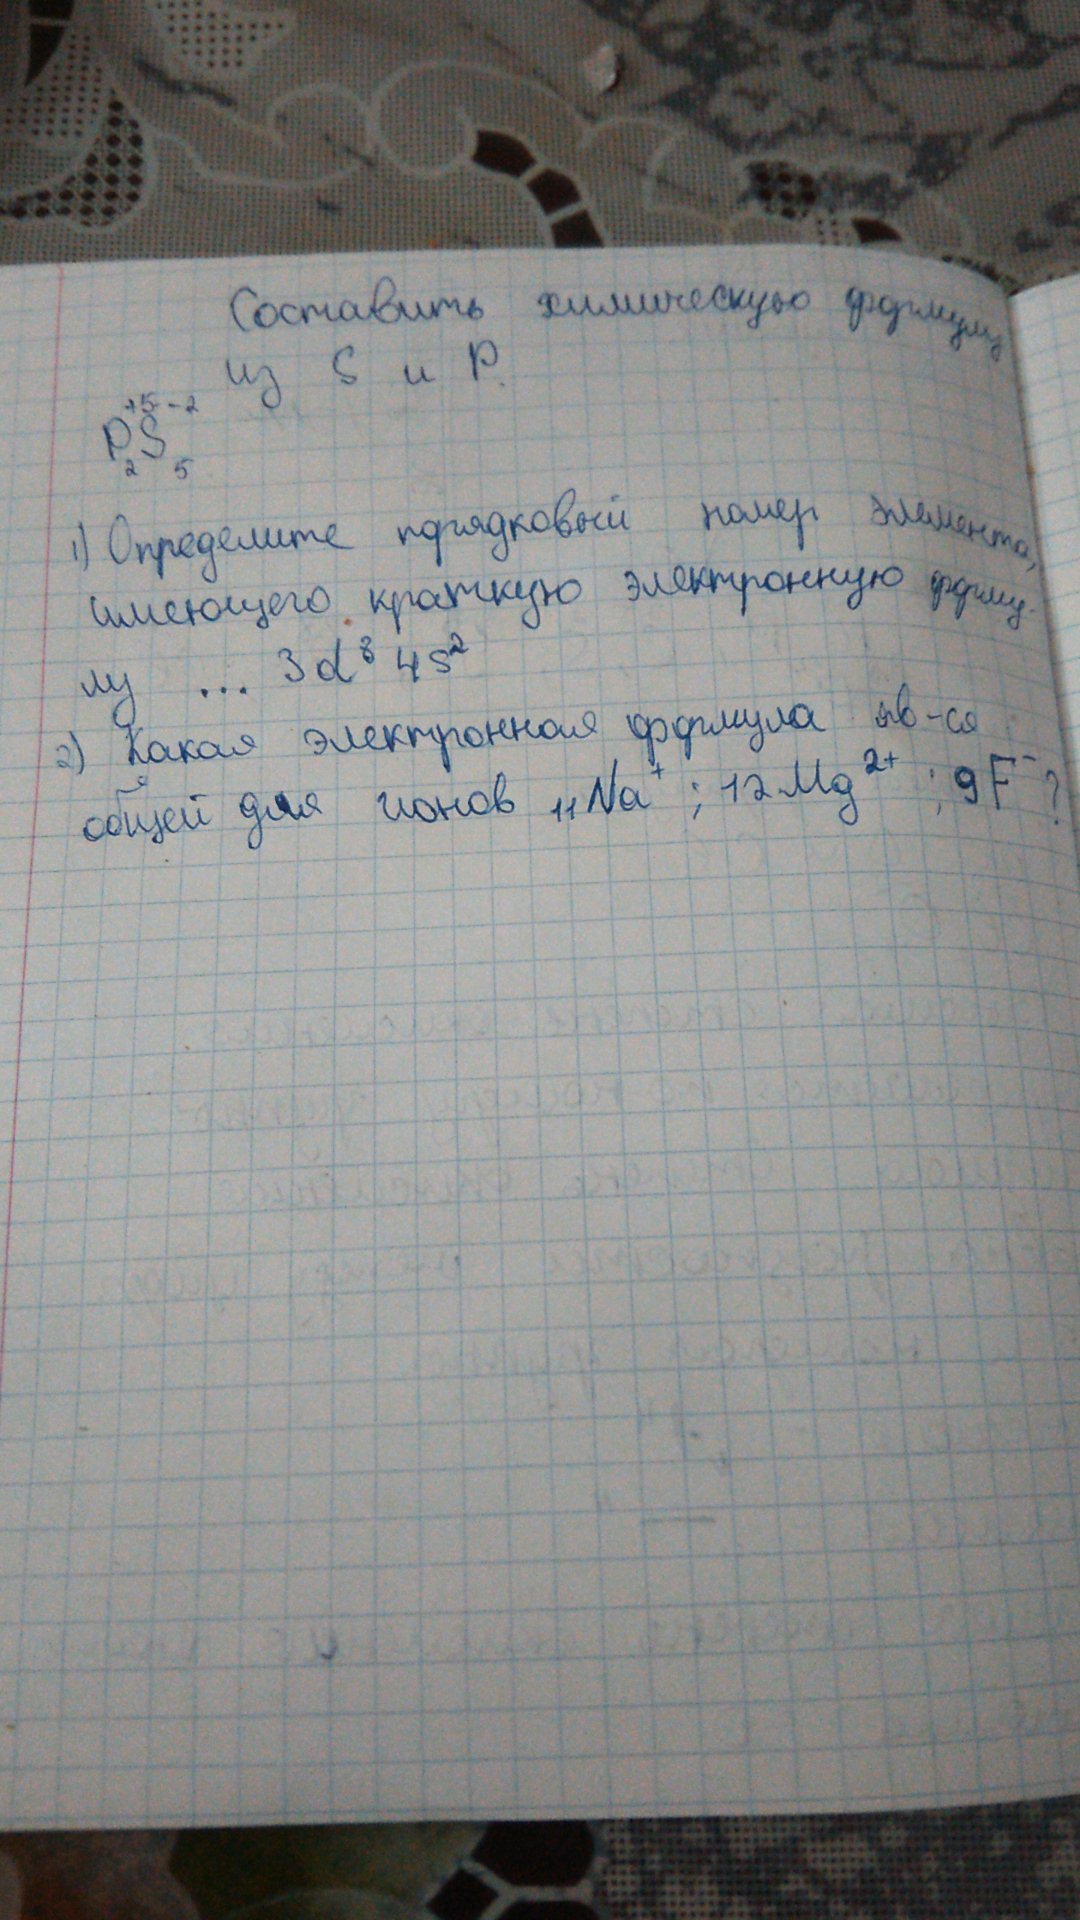 Составить химическую формулу
из S и P.
+5 -2
P₂S₅
1) Определите порядковый номер элемента,
имеющего краткую электронную форму-
лу ... 3d⁸ 4s²
2) Какая электронная формула яв-ся
общей для ионов ₁₁Na⁺ ; 12Mg²⁺ ; 9F⁻ ?